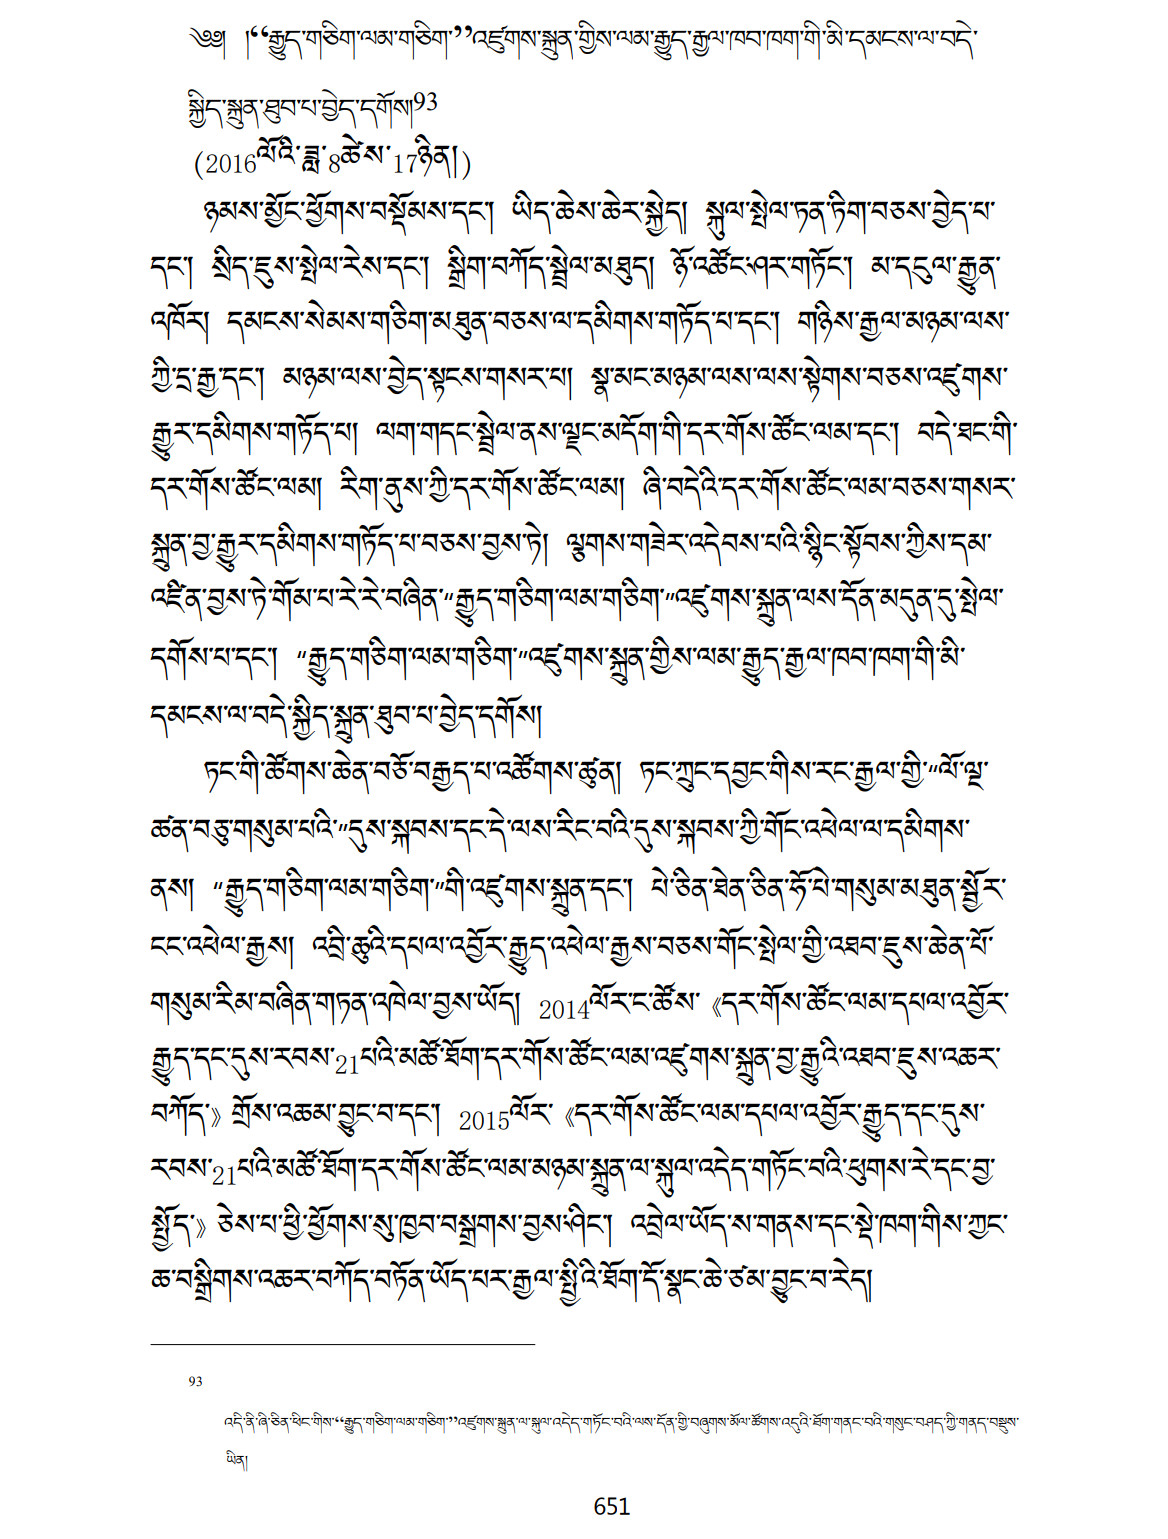 ༄༅། །“རྒྱུད་གཅིག་ལམ་གཅིག་”འཛུགས་སྐྲུན་གྱིས་ལམ་རྒྱུད་རྒྱལ་ཁབ་ཁག་གི་མི་དམངས་ལ་བདེ་
སྐྱིད་སྐྲུན་ཐུབ་པ་བྱེད་དགོས།93
(2016ལོའི་ཟླ་8ཚེས་17ཉིན།)
ཉམས་མྱོང་ཕྱོགས་བསྡོམས་དང་། ཡིད་ཆེས་ཆེར་སྐྱེད། སྐུལ་སྤེལ་ཏན་ཏིག་བཅས་བྱེད་པ་
དང་། སྲིད་ཇུས་སྤེལ་རེས་དང་། སྒྲིག་བཀོད་སྦྲེལ་མཐུད། ཉོ་འཚོང་ཤར་གཏོང་། མ་དངུལ་རྒྱུན་
འཁོར། དམངས་སེམས་གཅིག་མཐུན་བཅས་ལ་དམིགས་གཏོད་པ་དང་། གཉིས་རྒྱལ་མཉམ་ལས་
ཀྱི་དྲ་རྒྱ་དང་། མཉམ་ལས་བྱེད་སྟངས་གསར་པ། སྣ་མང་མཉམ་ལས་ལས་སྟེགས་བཅས་འཛུགས་
རྒྱུར་དམིགས་གཏོད་པ། ལག་གདང་སྦྲེལ་ནས་ལྗང་མདོག་གི་དར་གོས་ཚོང་ལམ་དང་། བདེ་ཐང་གི་
དར་གོས་ཚོང་ལམ། རིག་ནུས་ཀྱི་དར་གོས་ཚོང་ལམ། ཞི་བདེའི་དར་གོས་ཚོང་ལམ་བཅས་གསར་
སྐྲུན་བྱ་རྒྱུར་དམིགས་གཏོད་པ་བཅས་བྱས་ཏེ། ལྕགས་གཟེར་འདེབས་པའི་སྙིང་སྟོབས་ཀྱིས་དམ་
འཛིན་བྱས་ཏེ་གོམ་པ་རེ་རེ་བཞིན་“རྒྱུད་གཅིག་ལམ་གཅིག་”འཛུགས་སྐྲུན་ལས་དོན་མདུན་དུ་སྤེལ་
དགོས་པ་དང་། “རྒྱུད་གཅིག་ལམ་གཅིག་”འཛུགས་སྐྲུན་གྱིས་ལམ་རྒྱུད་རྒྱལ་ཁབ་ཁག་གི་མི་
དམངས་ལ་བདེ་སྐྱིད་སྐྲུན་ཐུབ་པ་བྱེད་དགོས།
ཏང་གི་ཚོགས་ཆེན་བཅོ་བརྒྱད་པ་འཚོགས་ཚུན། ཏང་ཀྲུང་དབྱང་གིས་རང་རྒྱལ་གྱི་“ལོ་ལྔ་
ཚན་བཅུ་གསུམ་པའི་”དུས་སྐབས་དང་དེ་ལས་རིང་བའི་དུས་སྐབས་ཀྱི་གོང་འཕེལ་ལ་དམིགས་
ནས། “རྒྱུད་གཅིག་ལམ་གཅིག་”གི་འཛུགས་སྐྲུན་དང་། པེ་ཅིན་ཐེན་ཅིན་ཧོ་པེ་གསུམ་མཐུན་སྦྱོར་
ངང་འཕེལ་རྒྱས། འབྲི་ཆུའི་དཔལ་འབྱོར་རྒྱུད་འཕེལ་རྒྱས་བཅས་གོང་སྤེལ་གྱི་འཐབ་ཇུས་ཆེན་པོ་
གསུམ་རིམ་བཞིན་གཏན་འཁེལ་བྱས་ཡོད། 2014ལོར་ང་ཚོས་《དར་གོས་ཚོང་ལམ་དཔལ་འབྱོར་
རྒྱུད་དང་དུས་རབས་21པའི་མཚོ་ཐོག་དར་གོས་ཚོང་ལམ་འཛུགས་སྐྲུན་བྱ་རྒྱུའི་འཐབ་ཇུས་འཆར་
བཀོད་》གྲོས་འཆམ་བྱུང་བ་དང་། 2015ལོར་《དར་གོས་ཚོང་ལམ་དཔལ་འབྱོར་རྒྱུད་དང་དུས་
རབས་21པའི་མཚོ་ཐོག་དར་གོས་ཚོང་ལམ་མཉམ་སྐྲུན་ལ་སྐུལ་འདེད་གཏོང་བའི་ཕུགས་རེ་དང་བྱ་
སྤྱོད་》ཅེས་པ་ཕྱི་ཕྱོགས་སུ་ཁྱབ་བསྒྲགས་བྱས་ཤིང་། འབྲེལ་ཡོད་ས་གནས་དང་སྡེ་ཁག་གིས་ཀྱང་
ཆ་བསྒྲིགས་འཆར་བཀོད་བཏོན་ཡོད་པར་རྒྱལ་སྤྱིའི་ཐོག་དོ་སྣང་ཆེ་ཙམ་བྱུང་བ་རེད།
93
འདི་ནི་ཞི་ཅིན་ཕིང་གིས་“རྒྱུད་གཅིག་ལམ་གཅིག་”འཛུགས་སྐྲུན་ལ་སྐུལ་འདེད་གཏོང་བའི་ལས་དོན་གྱི་བཞུགས་མོལ་ཚོགས་འདུའི་ཐོག་གནང་བའི་གསུང་བཤད་ཀྱི་གནད་བསྡུས་
ཡིན།
651